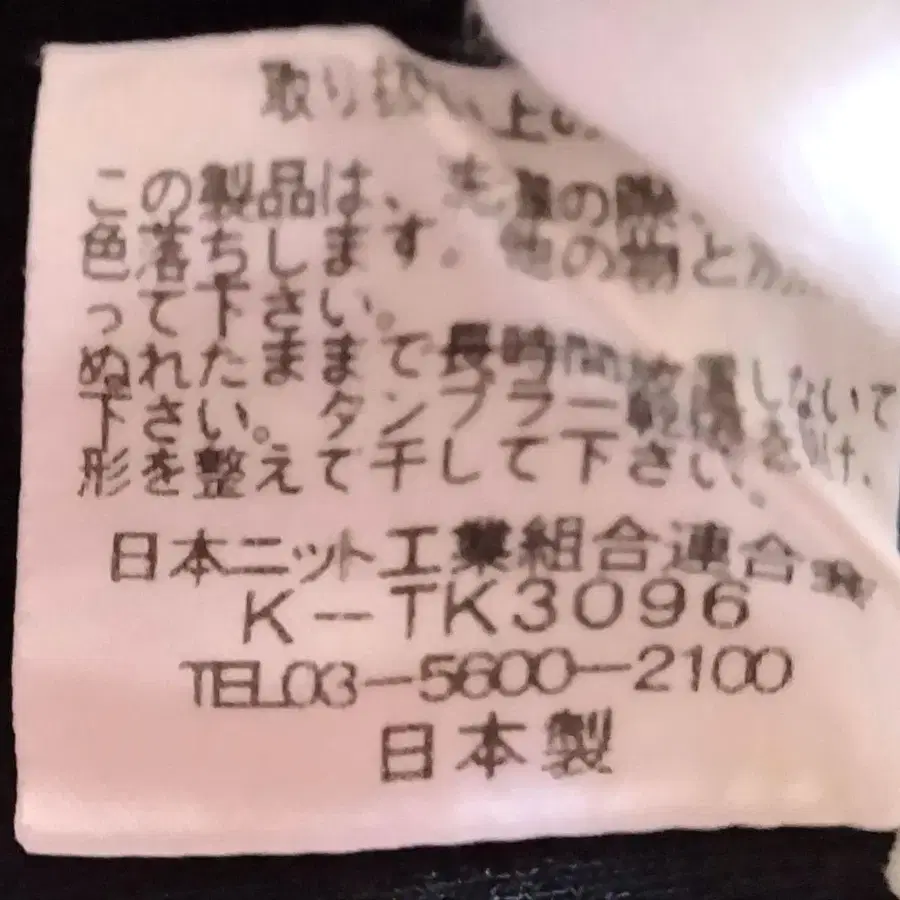 取り扱い上の
この製品は、洗濯の際、
色落ちします。他の物と
って下さい。
ぬれたままで長時間放置しないで
下さい。タンブラー乾燥を避け、
形を整えて干して下さい。
日本ニット工業組合連合会
K-TK3096
TEL03-5600-2100
日本製